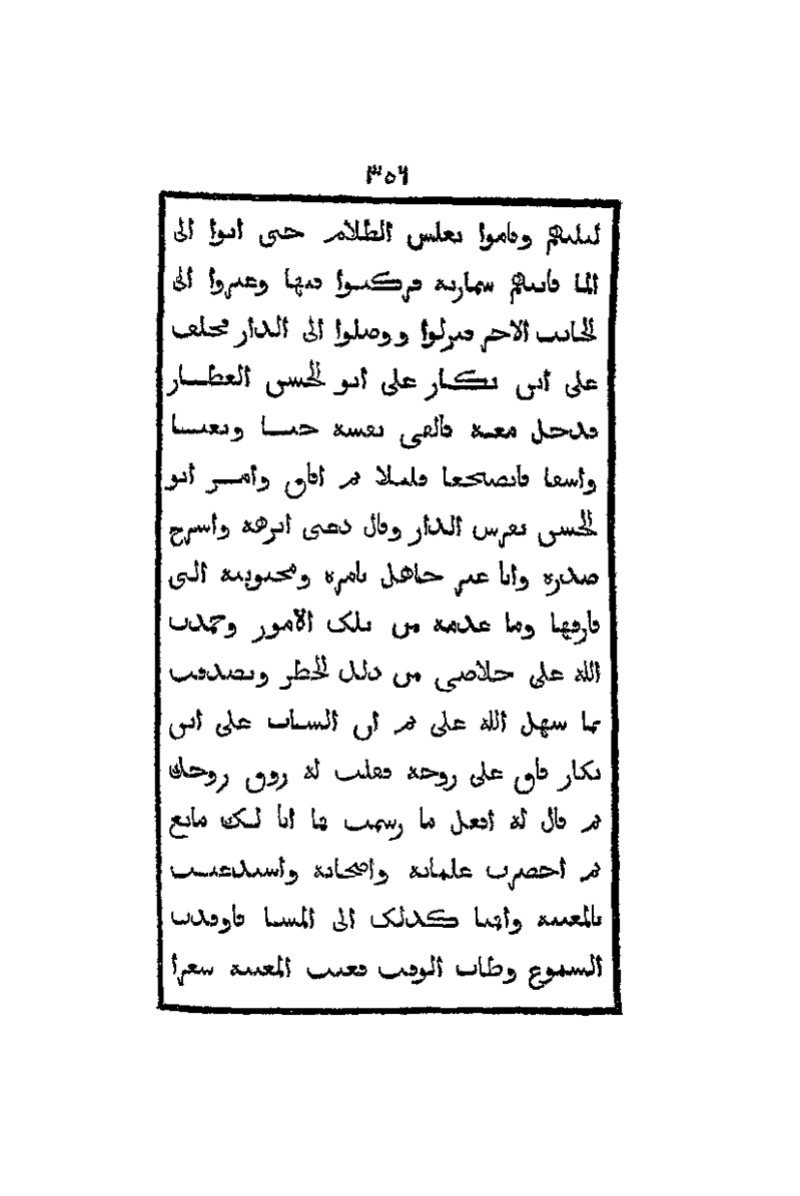 ٣٥٦
ليلتهم وقاموا بغلس الظلام حتى اتوا الى
الما فاتيهم سمارية فركبوا فيها وعبروا الى
الجانب الاخر فنزلوا ووصلوا الى الدار فحلف
على ابن بكار على ابو الحسن العطار
فدخل معه فالقى نفسه وتعبا
واسفا فانضجعا قليلا ثم افاق وامر ابو
الحسن بفرش الدار وقال دعنى انزهه واشرح
صدره وانا غير جاهل بامره ومحبوبته التى
فارقها وما عدمه من تلك الامور وحمدت
الله على خلاصى من ذلك الخطر وتصدقت
بما سهل الله على ثم ان الشاب على ابن
بكار فاق على روحه فقلت له روق روحك
ثم قال له افعل ما رسمت فما انا لك مانع
ثم احضرت غلمانه واصحابه واستدعيت
بالمغنية واقمنا كذلك الى المسا فاوقدت
الشموع وطاب الوقت فغنت المغنية شعرا